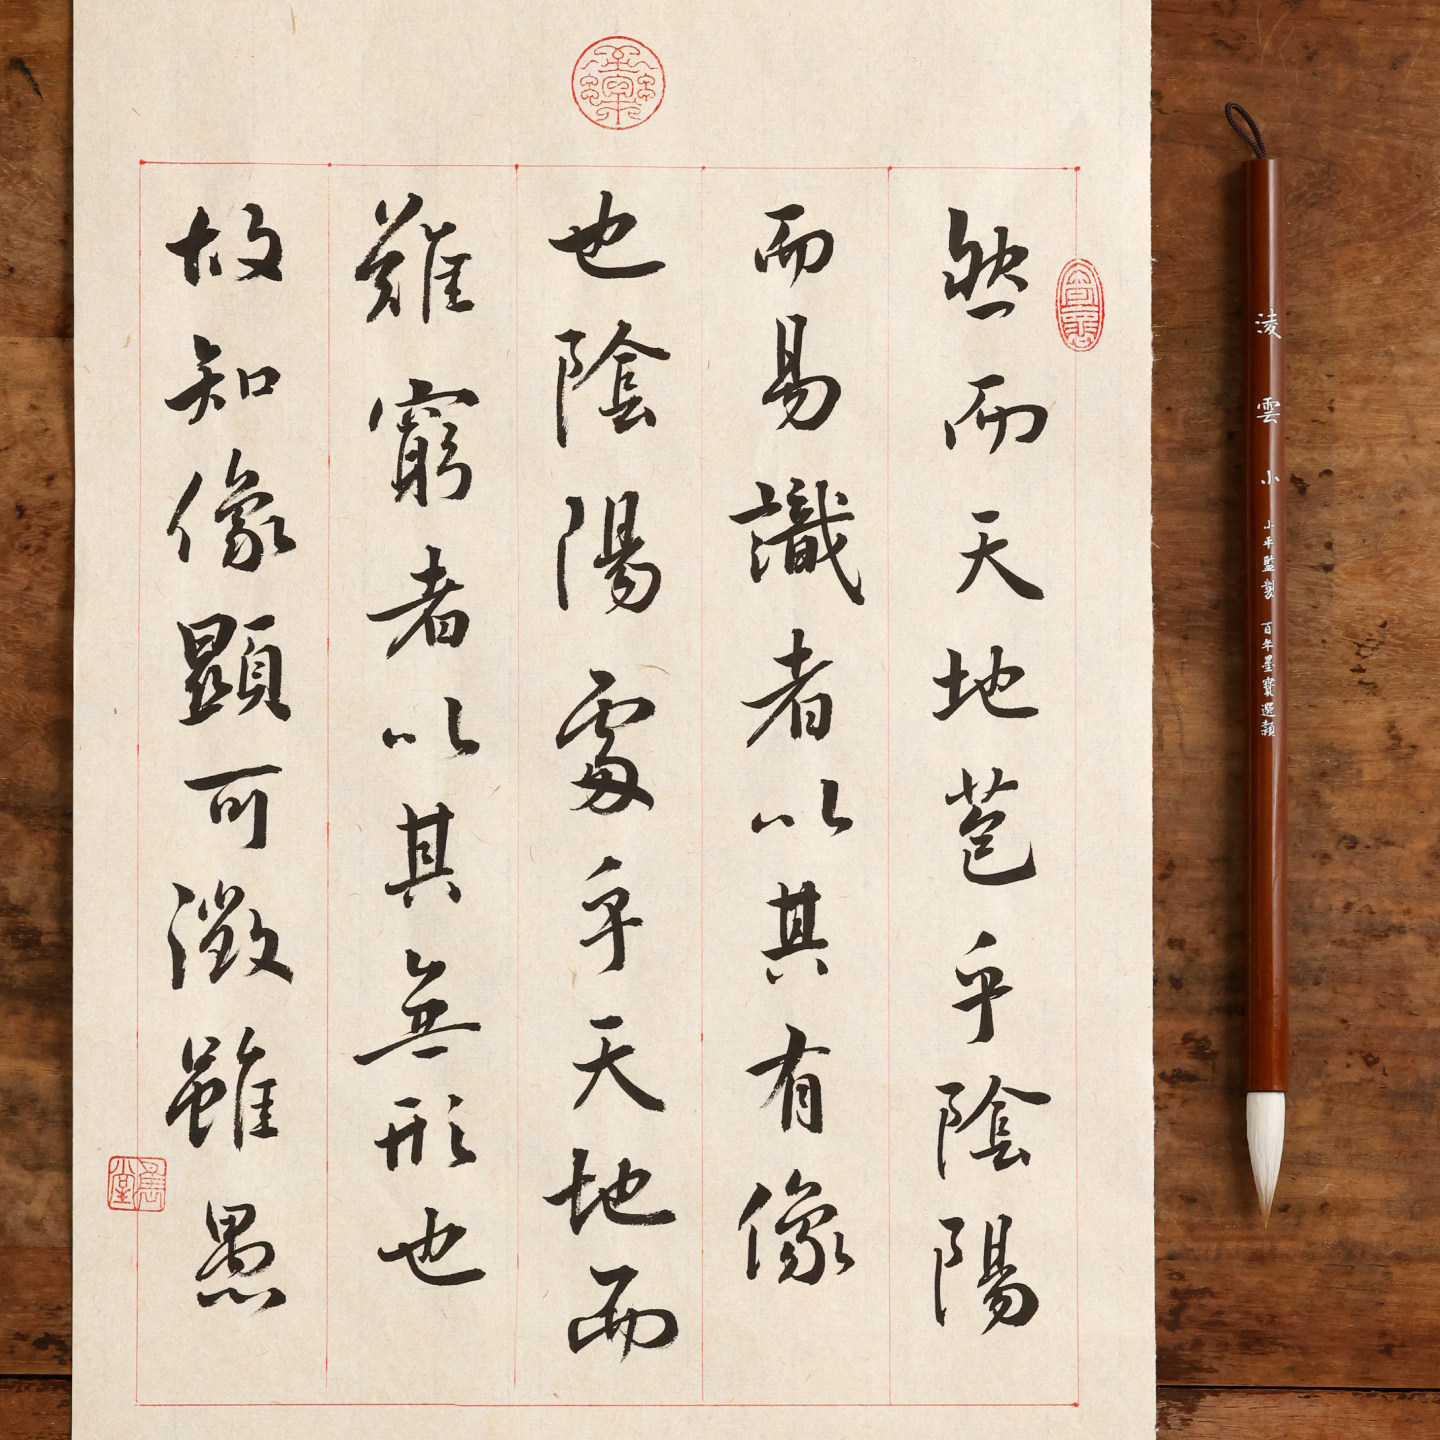 然而天地苞乎陰陽
而易識者以其有像
也陰陽處乎天地而
難窮者以其無形也
故知像顯可徵雖愚
淩雲小
小平監製 百年墨寶選穎